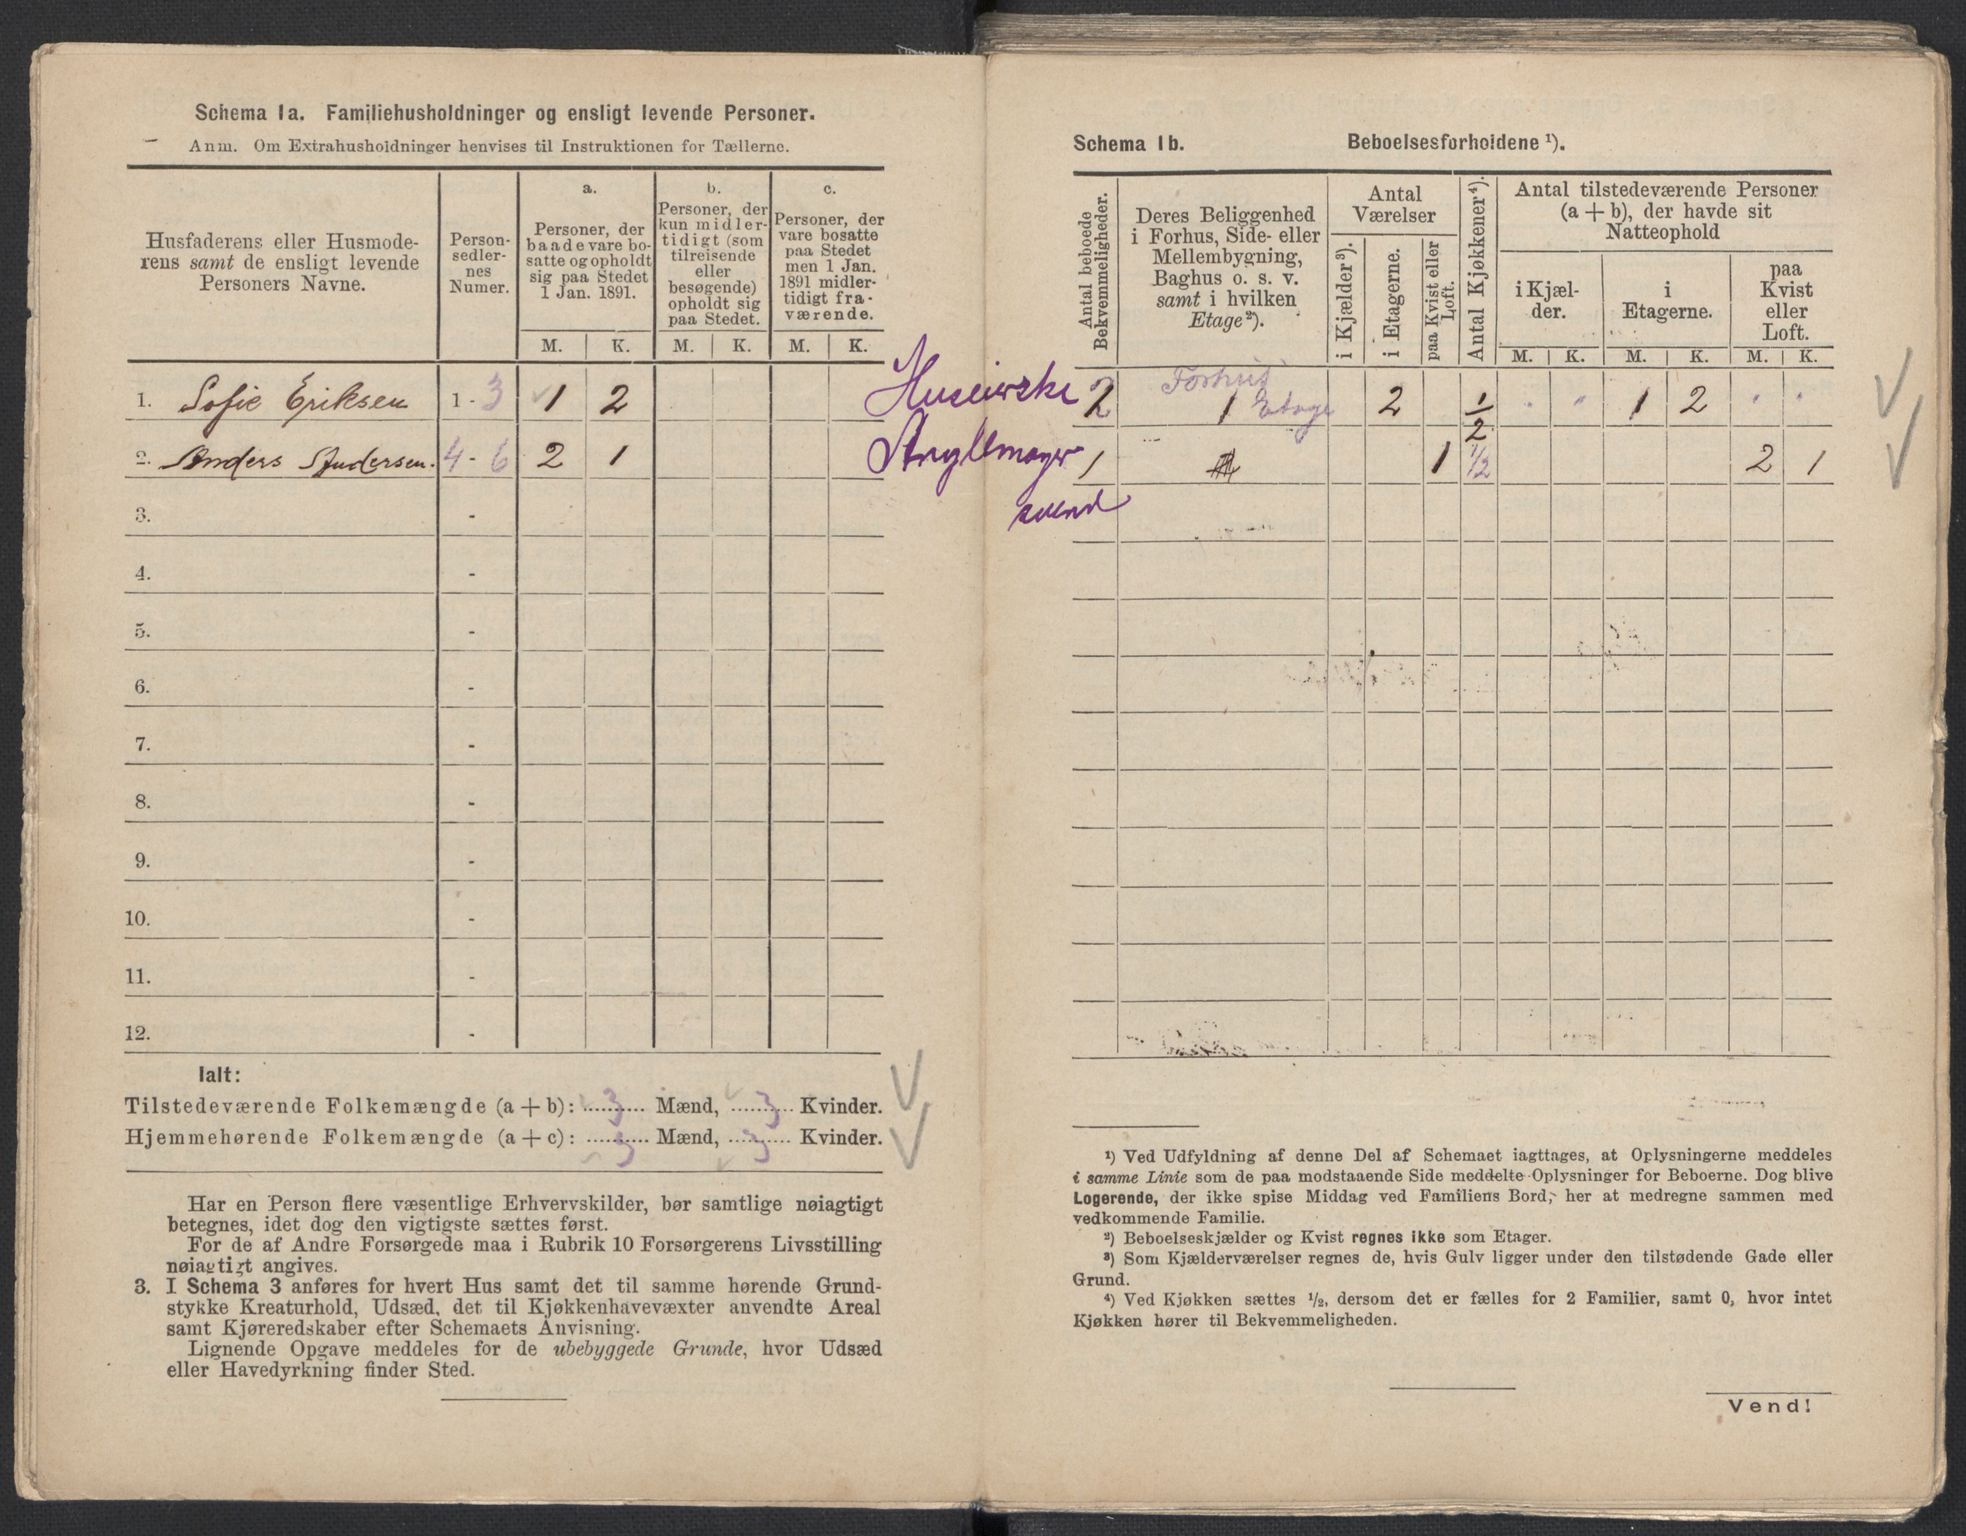 Schema 1a. Familiehusholdninger og ensligt levende Personer.
Anm. Om Extrahusholdninger henvises til Instruktionen for Tællerne.
Husfaderens eller Husmode-
rens samt de ensligt levende
Personers Navne.
Person-
sedler-
nes
Numer.
a.
Personer, der
baade vare bo-
satte og opholdt
sig paa Stedet
1 Jan. 1891.
b.
Personer, der
kun midler-
tidigt (som
tilreisende
eller
besøgende)
opholdt sig
paa Stedet.
c.
Personer, der
vare bosatte
paa Stedet
men 1 Jan.
1891 midler-
tidigt fra-
værende.
M. K. M. K. M. K.
1. Sofie Eriksen 1 - 3 1 2
2. Anders Andersen. 4 - 6 2 1
3. -
4. -
5. -
6. -
7. -
8. -
9. -
10. -
11. -
12. -
Ialt:
Tilstedeværende Folkemængde (a + b): 3 Mænd, 3 Kvinder.
Hjemmehørende Folkemængde (a + c): 3 Mænd, 3 Kvinder.
Har en Person flere væsentlige Erhvervskilder, bør samtlige nøiagtigt
betegnes, idet dog den vigtigste sættes først.
For de af Andre Forsørgede maa i Rubrik 10 Forsørgerens Livsstilling
nøiagtigt angives.
3. I Schema 3 anføres for hvert Hus samt det til samme hørende Grund-
stykke Kreaturhold, Udsæd, det til Kjøkkenhavevæxter anvendte Areal
samt Kjøreredskaber efter Schemaets Anvisning.
Lignende Opgave meddeles for de ubebyggede Grunde, hvor Udsæd
eller Havedyrkning finder Sted.
Schema 1b. Beboelsesforholdene ¹).
Antal beboede
Bekvemmeligheder.
Deres Beliggenhed
i Forhus, Side- eller
Mellembygning,
Baghus o. s. v.
samt i hvilken
Etage²).
Antal
Værelser
i Kjælder³).
i Etagerne.
paa Kvist eller
Loft.
Antal Kjøkkener⁴).
Antal tilstedeværende Personer
(a + b), der havde sit
Natteophold
i Kjæl-
der.
i
Etagerne.
paa
Kvist
eller
Loft.
M. K. M. K. M. K.
Forhus
2 1 Etage 2 1/2 " " 1 2 " "
1 1 1/2 2 1
svend
¹) Ved Udfyldning af denne Del af Schemaet iagttages, at Oplysningerne meddeles
i samme Linie som de paa modstaaende Side meddelte Oplysninger for Beboerne. Dog blive
Logerende, der ikke spise Middag ved Familiens Bord, her at medregne sammen med
vedkommende Familie.
²) Beboelseskjælder og Kvist regnes ikke som Etager.
³) Som Kjælderværelser regnes de, hvis Gulv ligger under den tilstødende Gade eller
Grund.
⁴) Ved Kjøkken sættes ½, dersom det er fælles for 2 Familier, samt 0, hvor intet
Kjøkken hører til Bekvemmeligheden.
Vend!